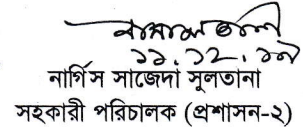 ১১.১২.১৭
নার্গিস সাজেদা সুলতানা
সহকারী পরিচালক (প্রশাসন-২)